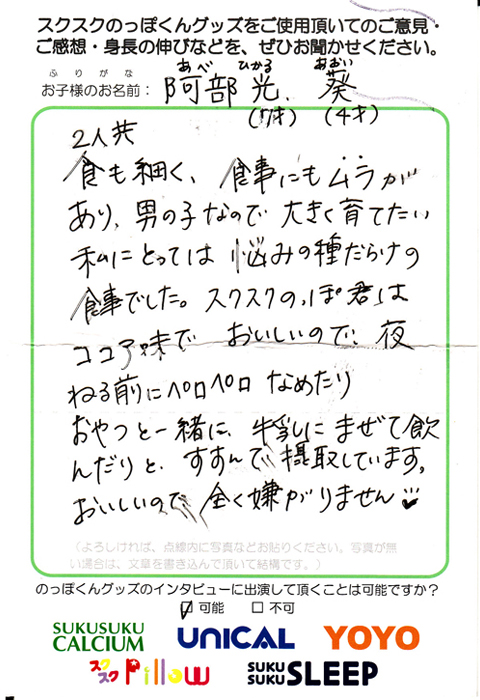 スクスクのっぽくんグッズをご使用頂いてのご意見・
ご感想・身長の伸びなどを、ぜひお聞かせください。
ふりがな あべ ひかる あおい
お子様のお名前: 阿部 光. 葵
(7才) (4才)
2人共
食も細く、食事にもムラが
あり、男の子なので 大きく育てたい
私にとっては 悩みの種だらけの
食事でした。スクスクのっぽ君は
ココア味で おいしいので、夜
ねる前にペロペロ なめたり
おやつと一緒に、牛乳に まぜて飲
んだりと、すすんで 摂取しています。
おいしいので 全く嫌がりません
(よろしければ、点線内に写真などお貼りください。写真が無
い場合は、文章を書き込んで頂いて結構です。)
のっぽくんグッズのインタビューに出演して頂くことは可能ですか?
☑ 可能 □ 不可
SUKUSUKU CALCIUM UNICAL YOYO
スクスク Pillow SUKU SUKU SLEEP